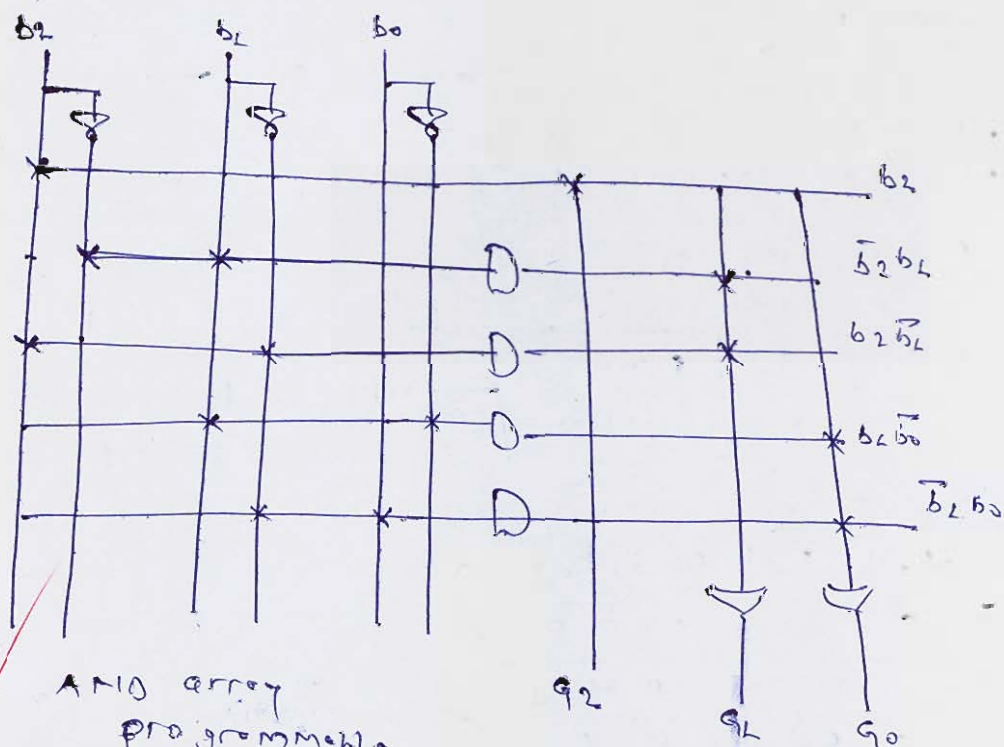 b2 b1 b0
b2
b̅2 b1
b2 b̅1
b1 b̅0
b̅1 b0
AND array
programmable
G2 G1 G0